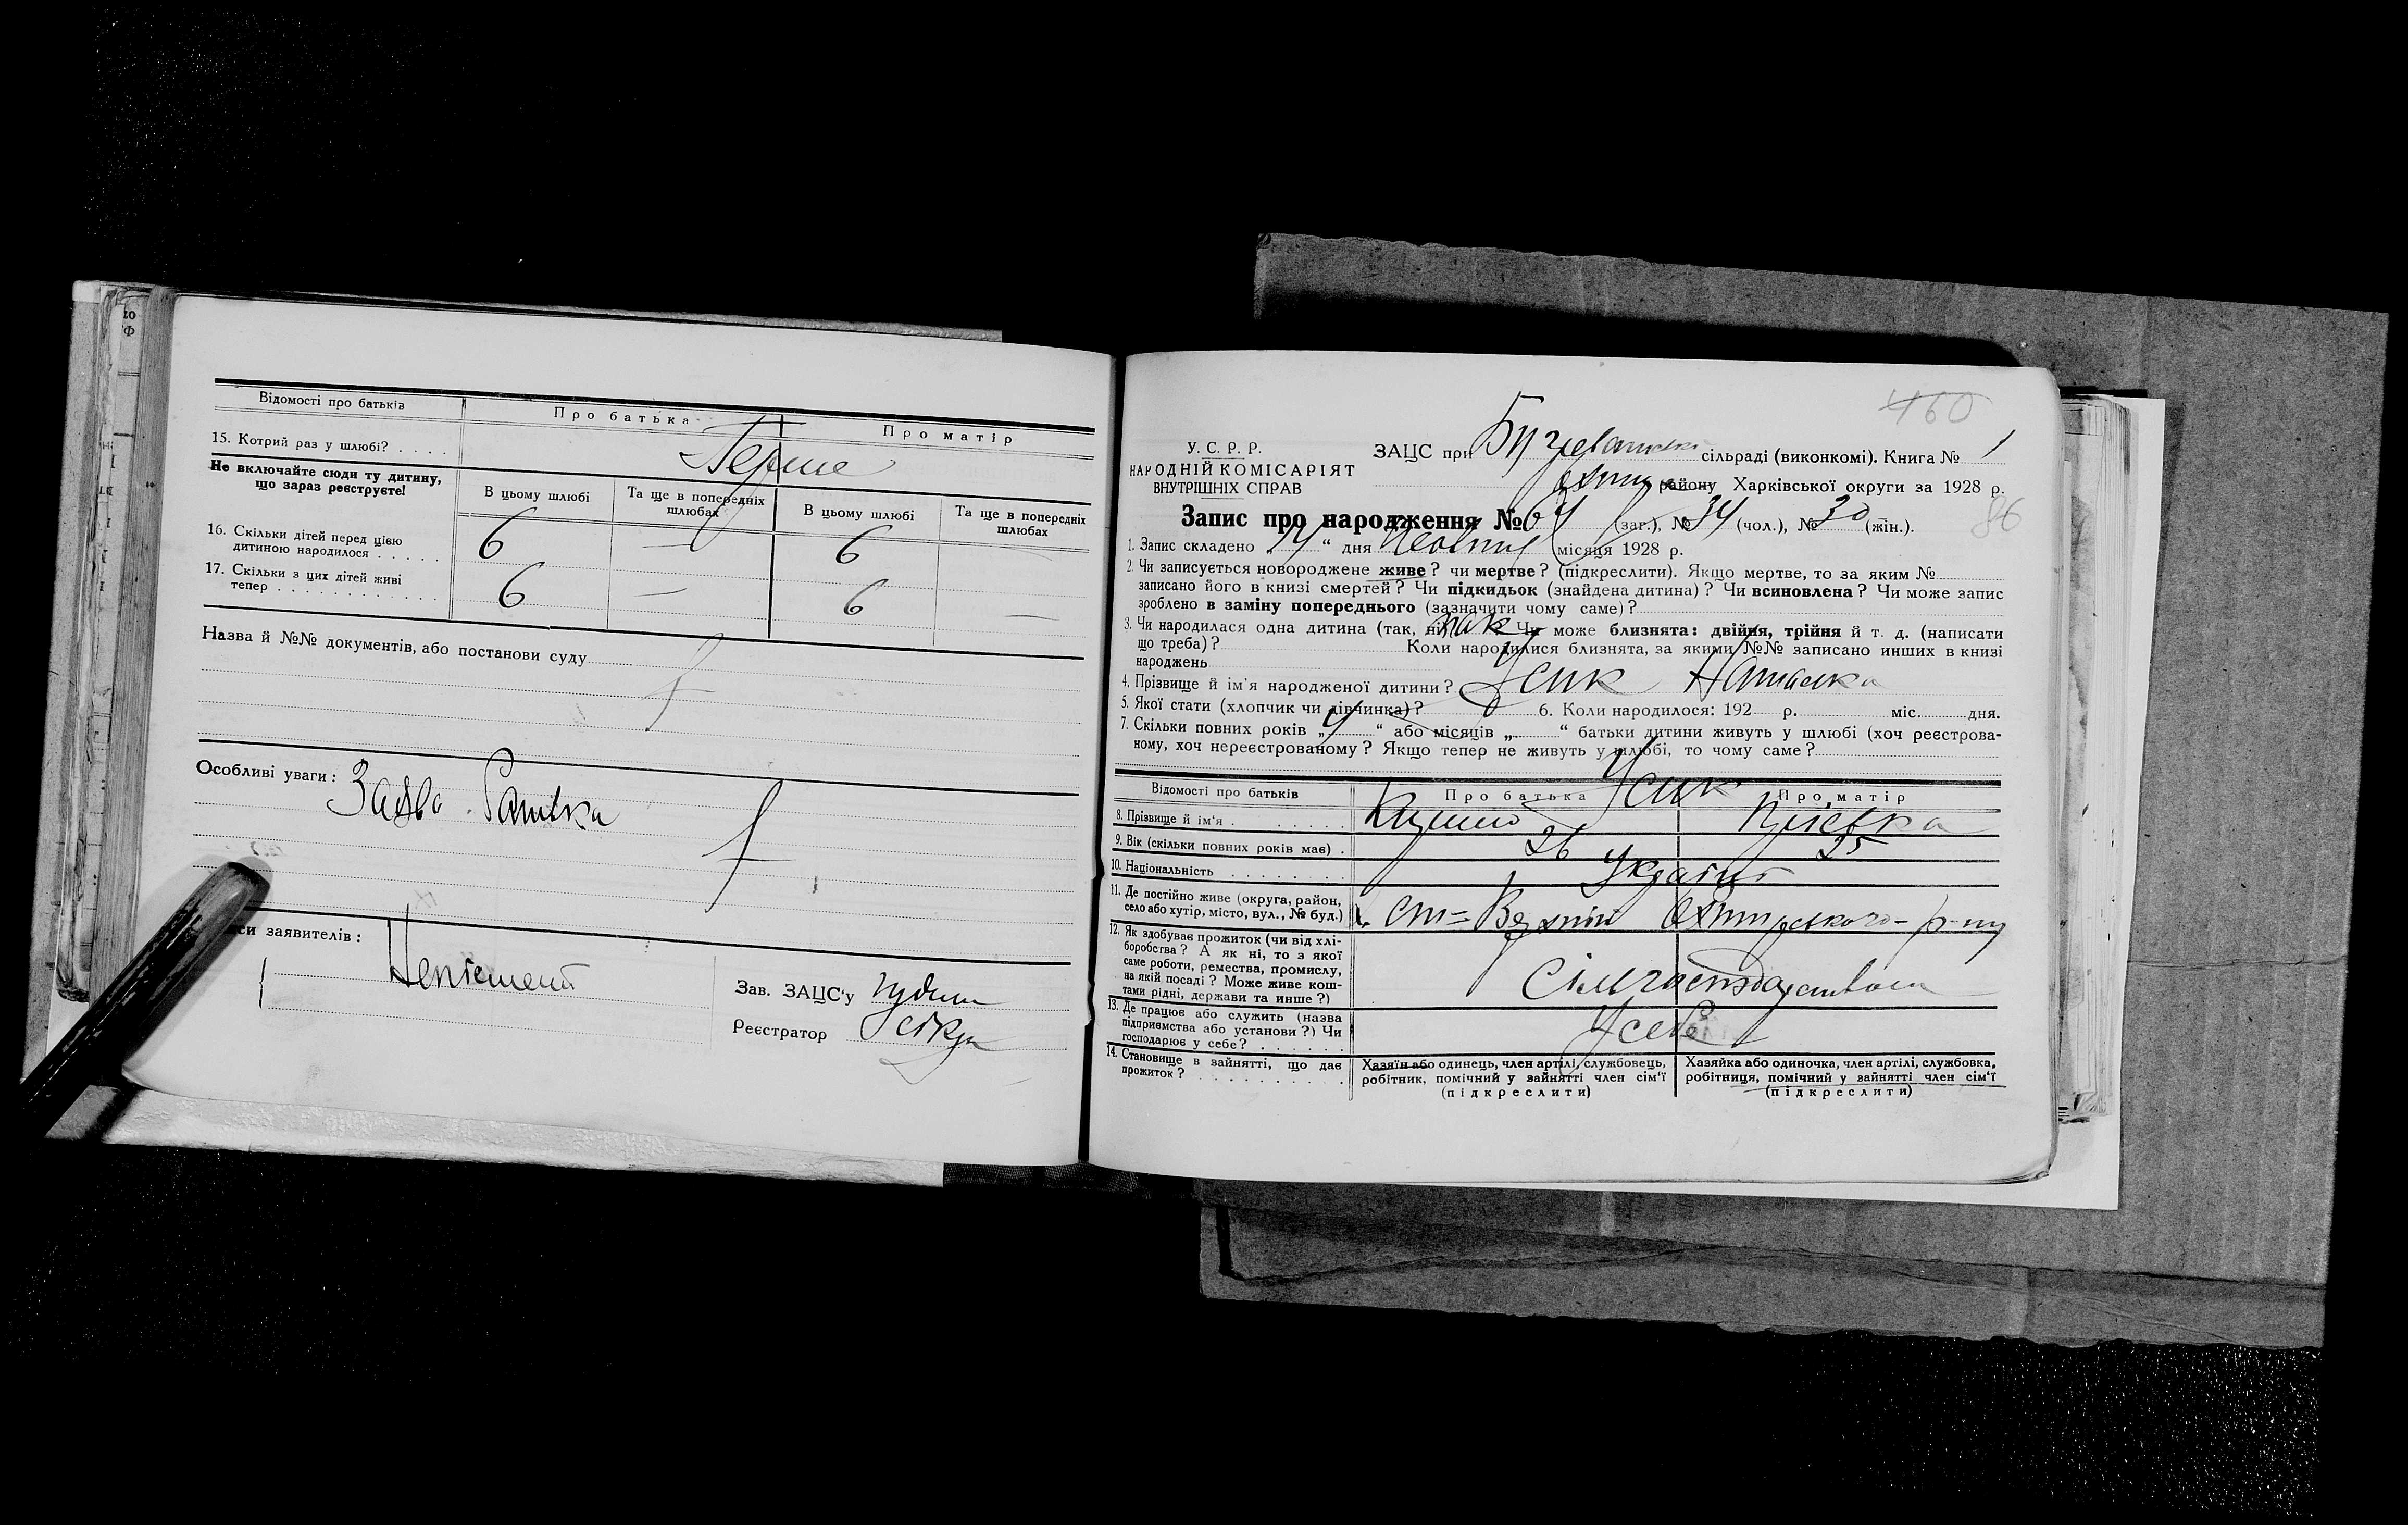 Відомості про батьків
Про батька
Про матір
15. Котрий раз у шлюбі? . . . .
Перше
Не включайте сюди ту дитину,
що зараз реєструєте!
В цьому шлюбі
Та ще в попередніх
шлюбах
В цьому шлюбі
Та ще в попередніх
шлюбах
16. Скільки дітей перед цією
дитиною народилося . . . . .
6 — 6 —
17. Скільки з цих дітей живі
тепер . . . . . . . . . . . . .
6 — 6 —
Назва й №№ документів, або постанови суду
Особливі уваги: Заява Батька
си заявителів:
Неписьмен
Зав. ЗАЦС'у
Реєстратор
460
У. С. Р. Р.
НАРОДНІЙ КОМІСАРІЯТ
ВНУТРІШНІХ СПРАВ
ЗАЦС при сільраді (виконкомі). Книга № 1
району Харківської округи за 1928 р.
86
Запис про народження № 64 (заг.), № 34 (чол.), № 30 (жін.).
1. Запис складено „ “ дня місяця 1928 р.
2. Чи записується новороджене живе? чи мертве? (підкреслити). Якщо мертве, то за яким №
записано його в книзі смертей? Чи підкидьок (знайдена дитина)? Чи всиновлена? Чи може запис
зроблено в заміну попереднього (зазначити чому саме)?
3. Чи народилася одна дитина (так, ні) так Чи може близнята: двійня, трійня й т. д. (написати
що треба)? Коли народилися близнята, за якими №№ записано инших в книзі
народжень
4. Прізвище й ім'я народженої дитини? Усик Наталка
5. Якої стати (хлопчик чи дівчинка)? 6. Коли народилося: 192 р. міс. дня.
7. Скільки повних років „ “ або місяців „ “ батьки дитини живуть у шлюбі (хоч реєстрова-
ному, хоч нереєстрованому? Якщо тепер не живуть у шлюбі, то чому саме?
Відомості про батьків
Про батька
Про матір
Усик
8. Прізвище й ім'я . . . . . . . .
9. Вік (скільки повних років має) . 26 25
10. Національність . . . . . . . . Україн
11. Де постійно живе (округа, район,
село або хутір, місто, вул., № буд.)
12. Як здобуває прожиток (чи від хлі-
боробства? А як ні, то з якої
саме роботи, ремества, промислу,
на якій посаді? Може живе кош-
тами рідні, держави та инше?)
Сільгосподарством
13. Де працює або служить (назва
підприємства або установи?) Чи
господарює у себе? . . . . . .
У себе
14. Становище в зайнятті, що дає
прожиток? . . . . . . . . . .
Хазяїн або одинець, член артілі, службовець,
робітник, помічний у зайнятті член сім'ї
(підкреслити)
Хазяйка або одиночка, член артілі, службовка,
робітниця, помічний у зайнятті член сім'ї
(підкреслити)